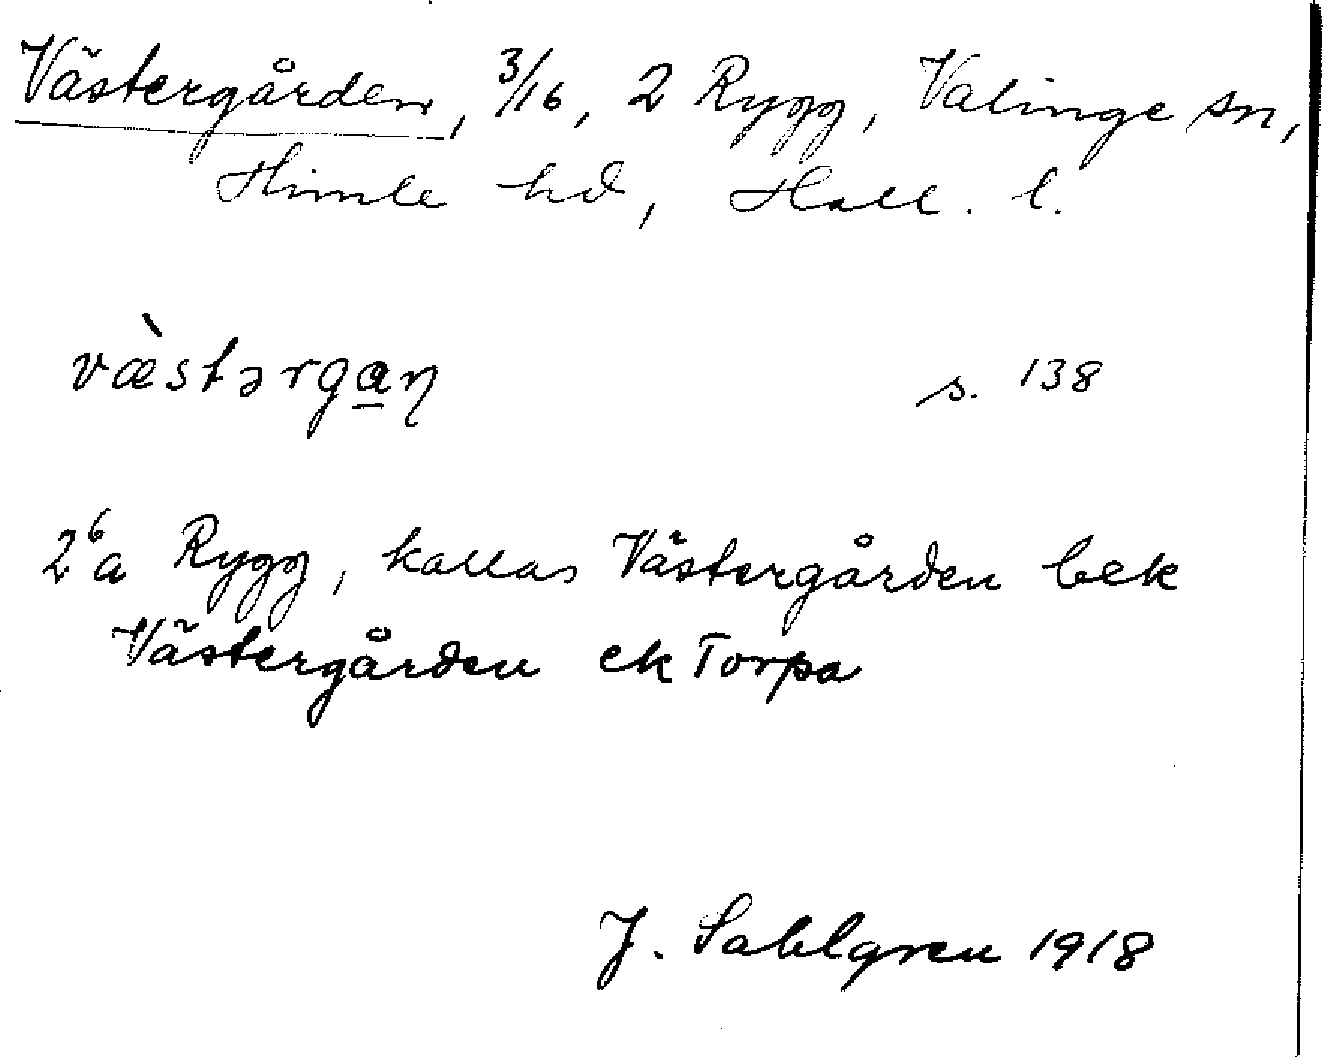 Västergården, 3/16, 2 Rygg, Valinge sn,
Himle hd, Hall. l.
væ̀stərga̲ŋ s. 138
2⁶a Rygg, kallas Västergården bek
Västergården ek Torpa
J. Sahlgren 1918